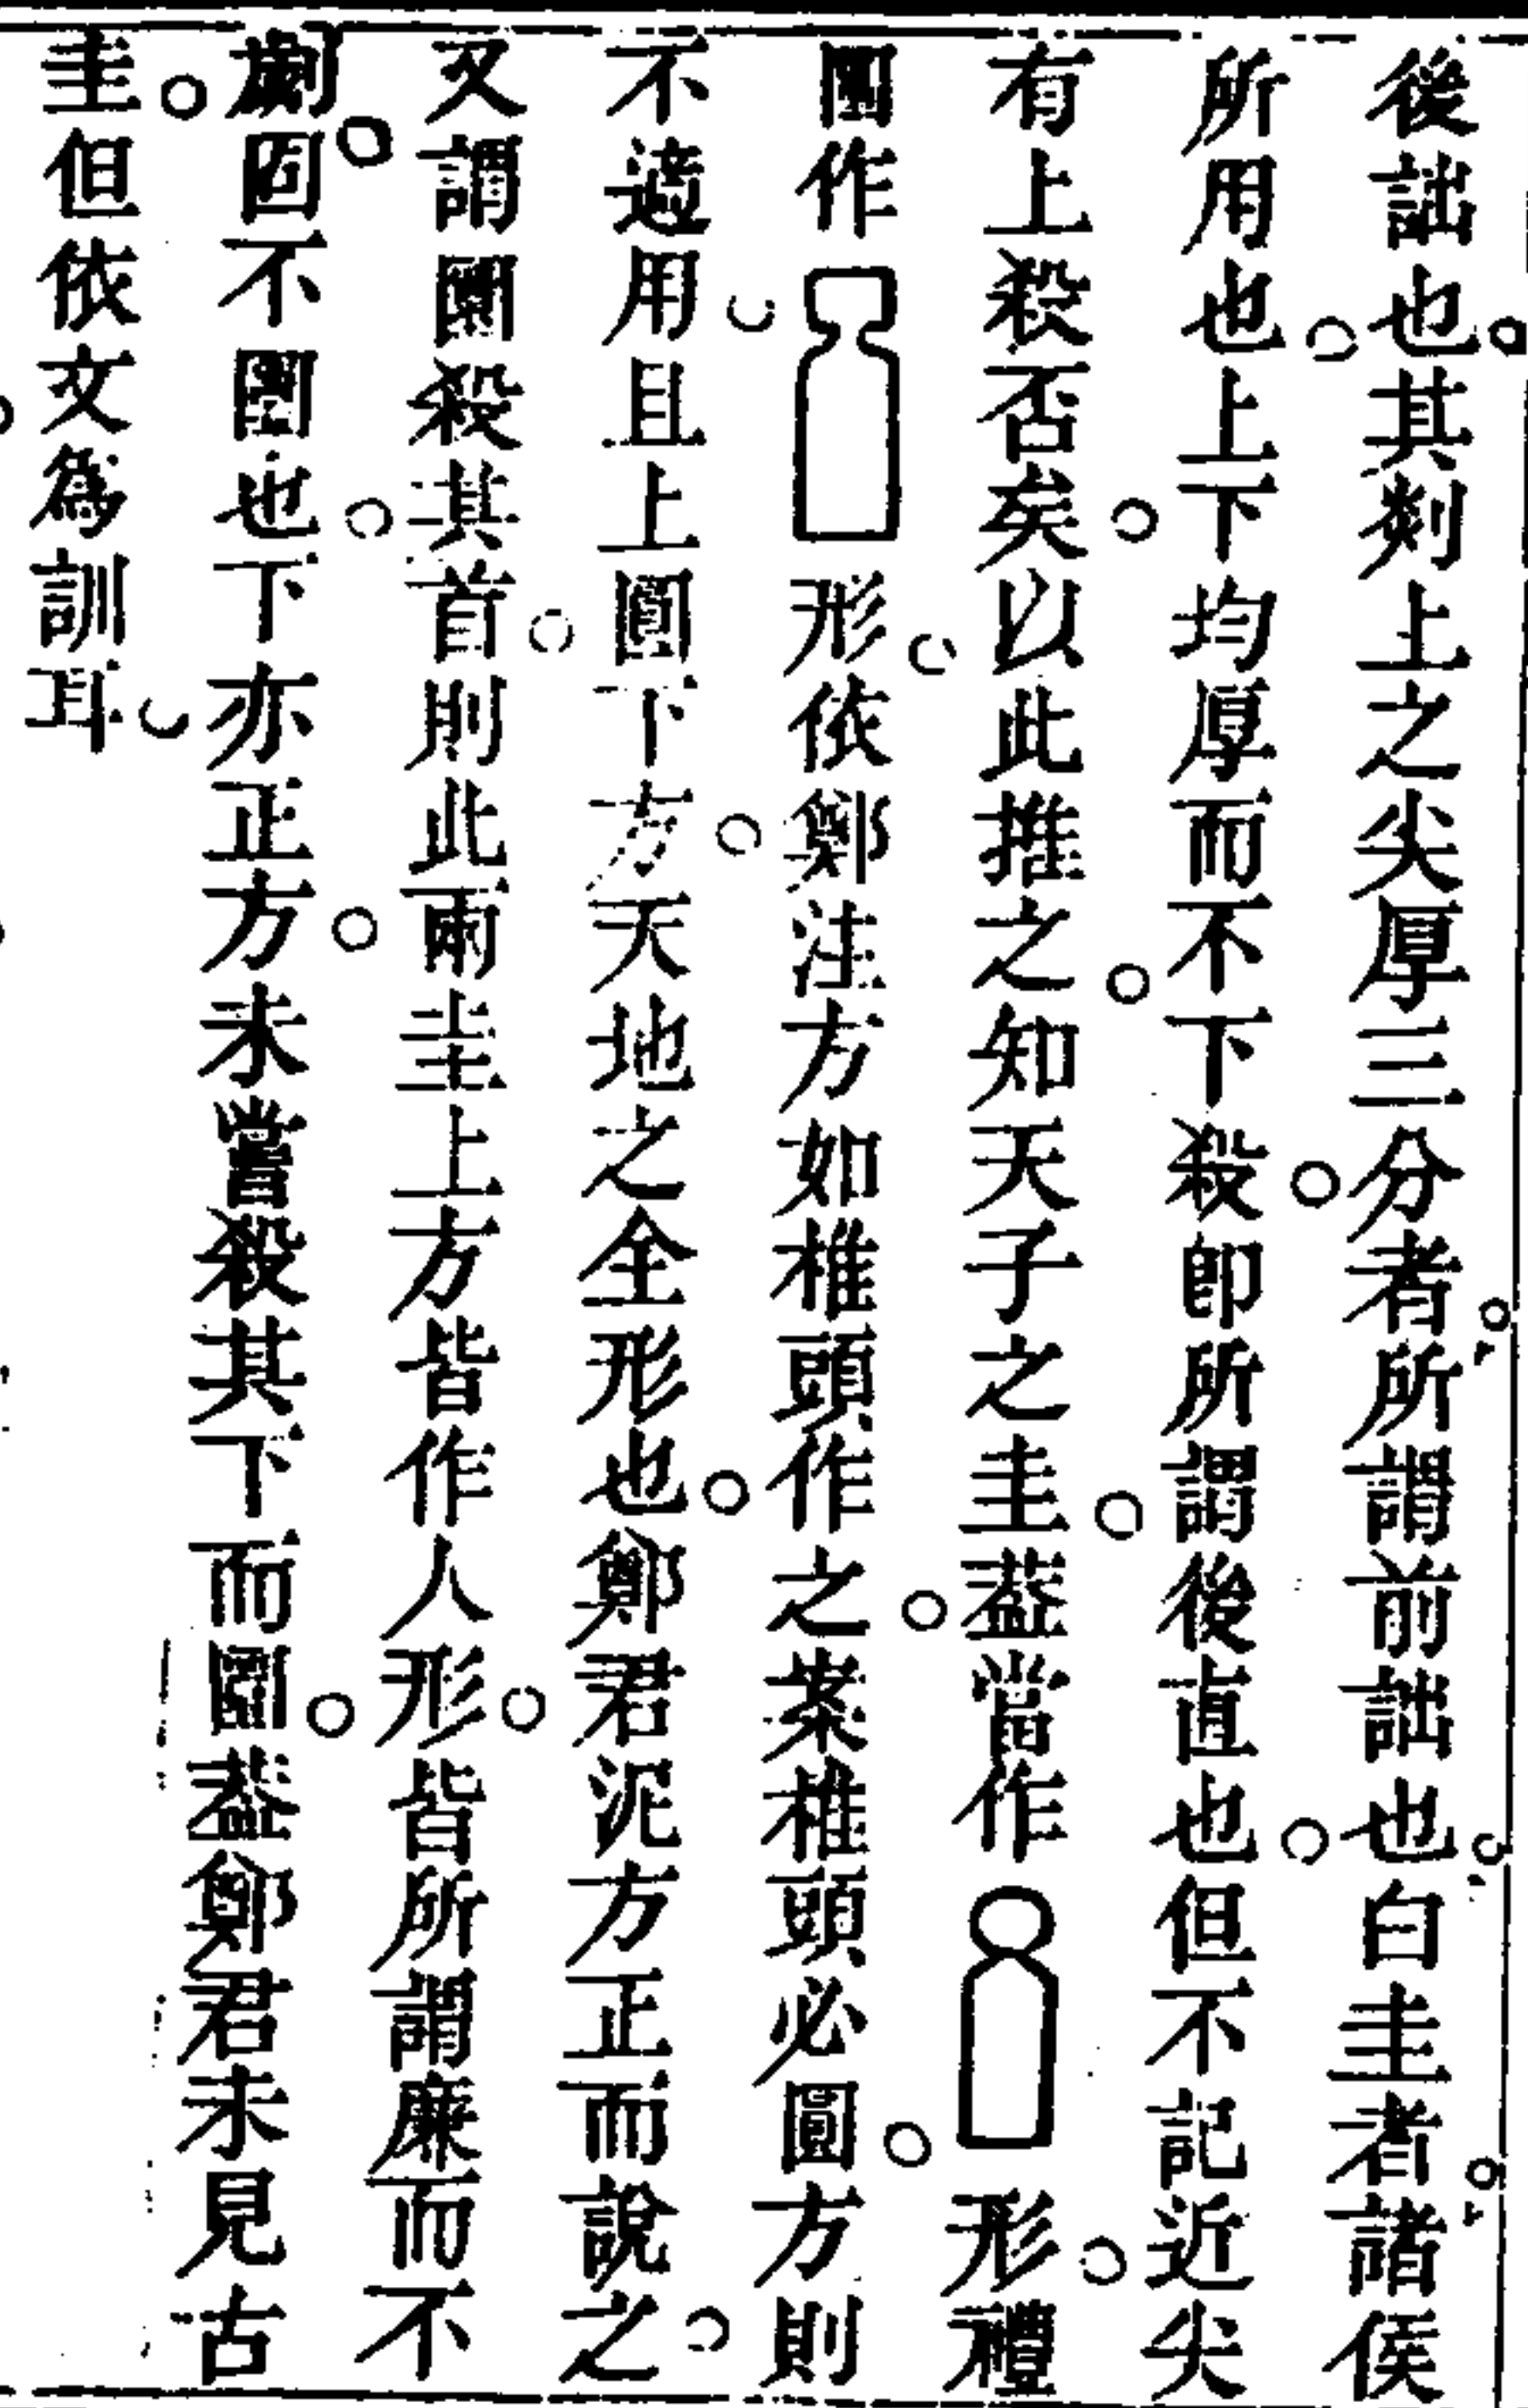 後詘也其剡上之尖厚三分者所謂前詘也白圭者諸侯
所用也上下均厚而不下殺卽所謂後直也但不記近尖
有上殺否矣以此推之知天子之圭葢當作形禮
圖作形依鄭注方如椎頭作之案椎頭必圓方則
不適用且上圓下方天地之全形也鄭君泥方正而說之
又謂圜殺其首則此兩圭上方皆作人形皆所謂廉而不
劌固不圓也下亦正方未嘗殺其下而圓葢鄭君未見古
圭但依文為訓耳